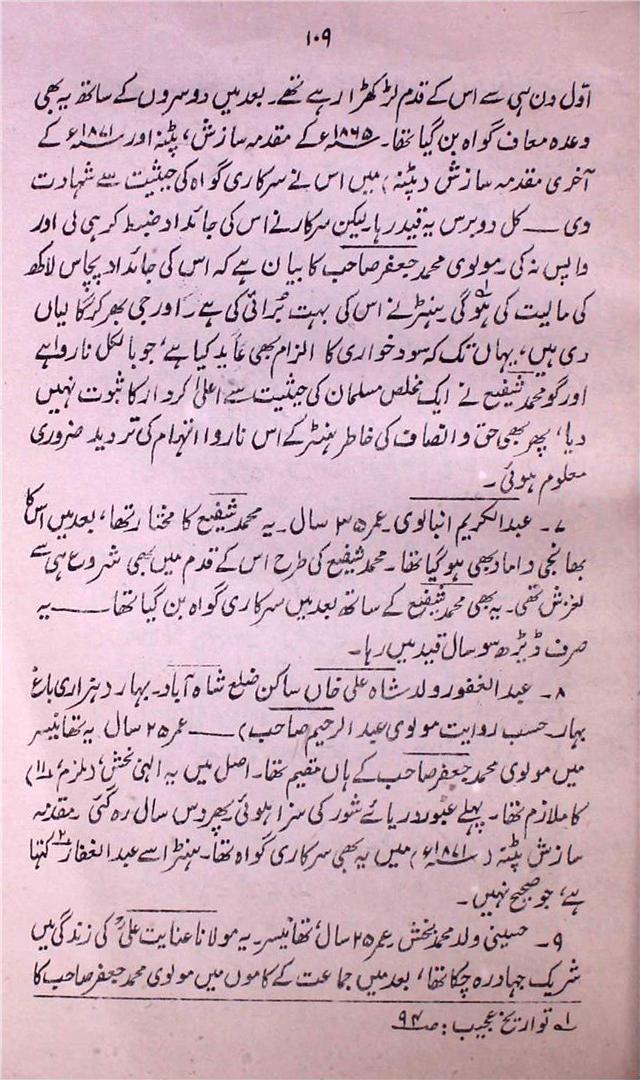 ۱۰۹
اوّل دن ہی سے اس کے قدم لڑکھڑا رہے تھے۔ بعد میں دوسروں کے ساتھ یہ بھی
وعدہ معاف گواہ بن گیا تھا۔ ۱۸۶۵ء کے مقدمہ سازش، پٹنہ اور ۱۸۷۱ء کے
آخری مقدمہ سازش (پٹنہ) میں اس نے سرکاری گواہ کی حیثیت سے شہادت
دی — کل دو برس یہ قید رہا، لیکن سرکار نے اس کی جائداد ضبط کر ہی لی اور
واپس نہ کی۔ مولوی محمد جعفر صاحب کا بیان ہے کہ اس کی جائداد پچاس لاکھ
کی مالیت کی ہوگی۱ ۔ ہنٹر نے اس کی بہت بُرائی کی ہے۔ اور جی بھر کر گالیاں
دی ہیں، یہاں تک کہ سود خواری کا الزام بھی عاید کیا ہے، جو بالکل ناروا ہے
اور گو محمد شفیع نے ایک مخلص مسلمان کی حیثیت سے اعلیٰ کردار کا ثبوت نہیں
دیا، پھر بھی حق و انصاف کی خاطر ہنٹر کے اس ناروا اتہام کی تردید ضروری
معلوم ہوئی۔
۷۔ عبدالکریم انبالوی۔ عمر ۳۵ سال۔ یہ محمد شفیع کا مختار تھا، بعد میں اس کا
بھانجی داماد بھی ہو گیا تھا۔ محمد شفیع کی طرح اس کے قدم میں بھی شروع ہی سے
لغزش تھی۔ یہ بھی محمد شفیع کے ساتھ بعد میں سرکاری گواہ بن گیا تھا — یہ
صرف ڈیڑھ سو سال قید میں رہا۔
۸۔ عبدالغفور ولد شاہ علی خاں ساکن ضلع شاہ آباد۔ بہار (ہزاری باغ
بہار حسب روایت مولوی عبدالرحیم صاحب) — عمر ۲۵ سال یہ تھانیسر
میں مولوی محمد جعفر صاحب کے ہاں مقیم تھا۔ اصل میں یہ الٰہی بخش، (ملزم ۱۱)
کا ملازم تھا۔ پہلے عبور دریائے شور کی سزا ہوئی پھر دس سال رہ گئی۔ مقدمہ
سازش پٹنہ (۱۸۷۱ء) میں یہ بھی سرکاری گواہ تھا۔ ہنٹر اسے عبدالغفار ۲ کہتا
ہے، جو صحیح نہیں۔
۹۔ حسینی ولد محمد بخش۔ عمر ۲۵ سال، تھانیسر۔ یہ مولانا عنایت علیؒ کی زندگی میں
شریک جہاد رہ چکا تھا، بعد میں جماعت کے کاموں میں مولوی محمد جعفر صاحب کا
۱ تواریخ عجیب : صـ ۹۴